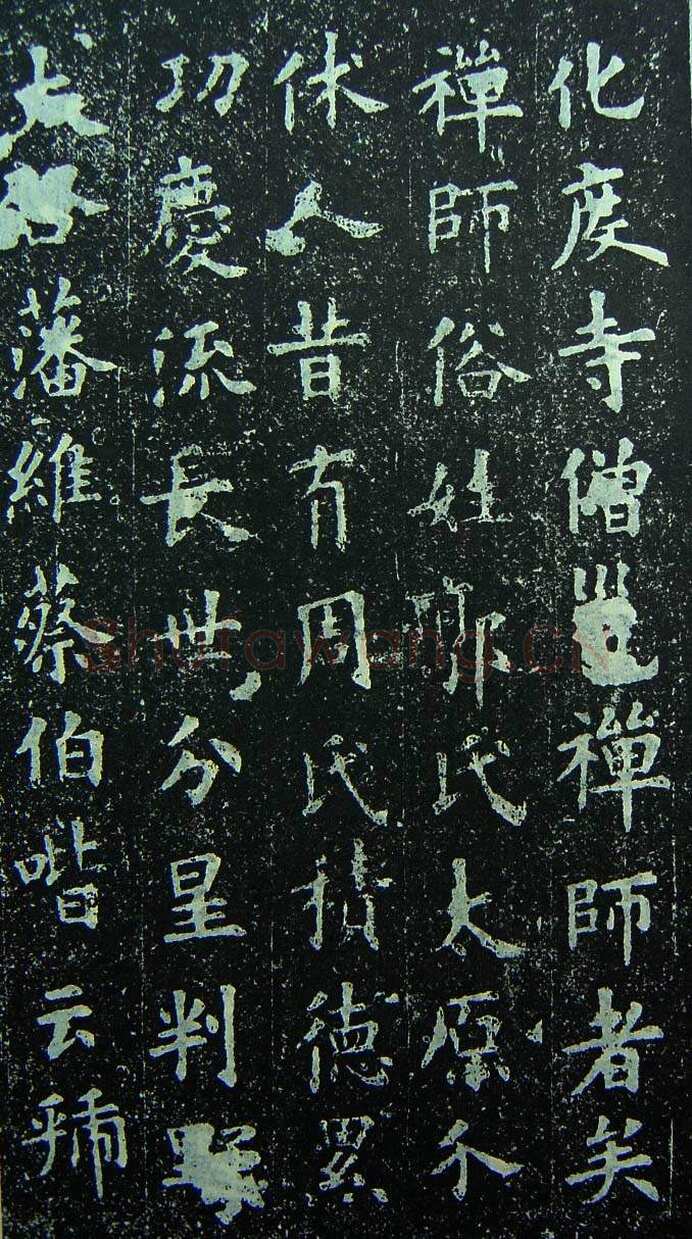 化度寺僧邕禪師者矣
禪師俗姓郭氏太原介
休人昔有周氏積德累
功慶流長世分星判野
大啓藩維蔡伯喈云虢
Shufawang.CN